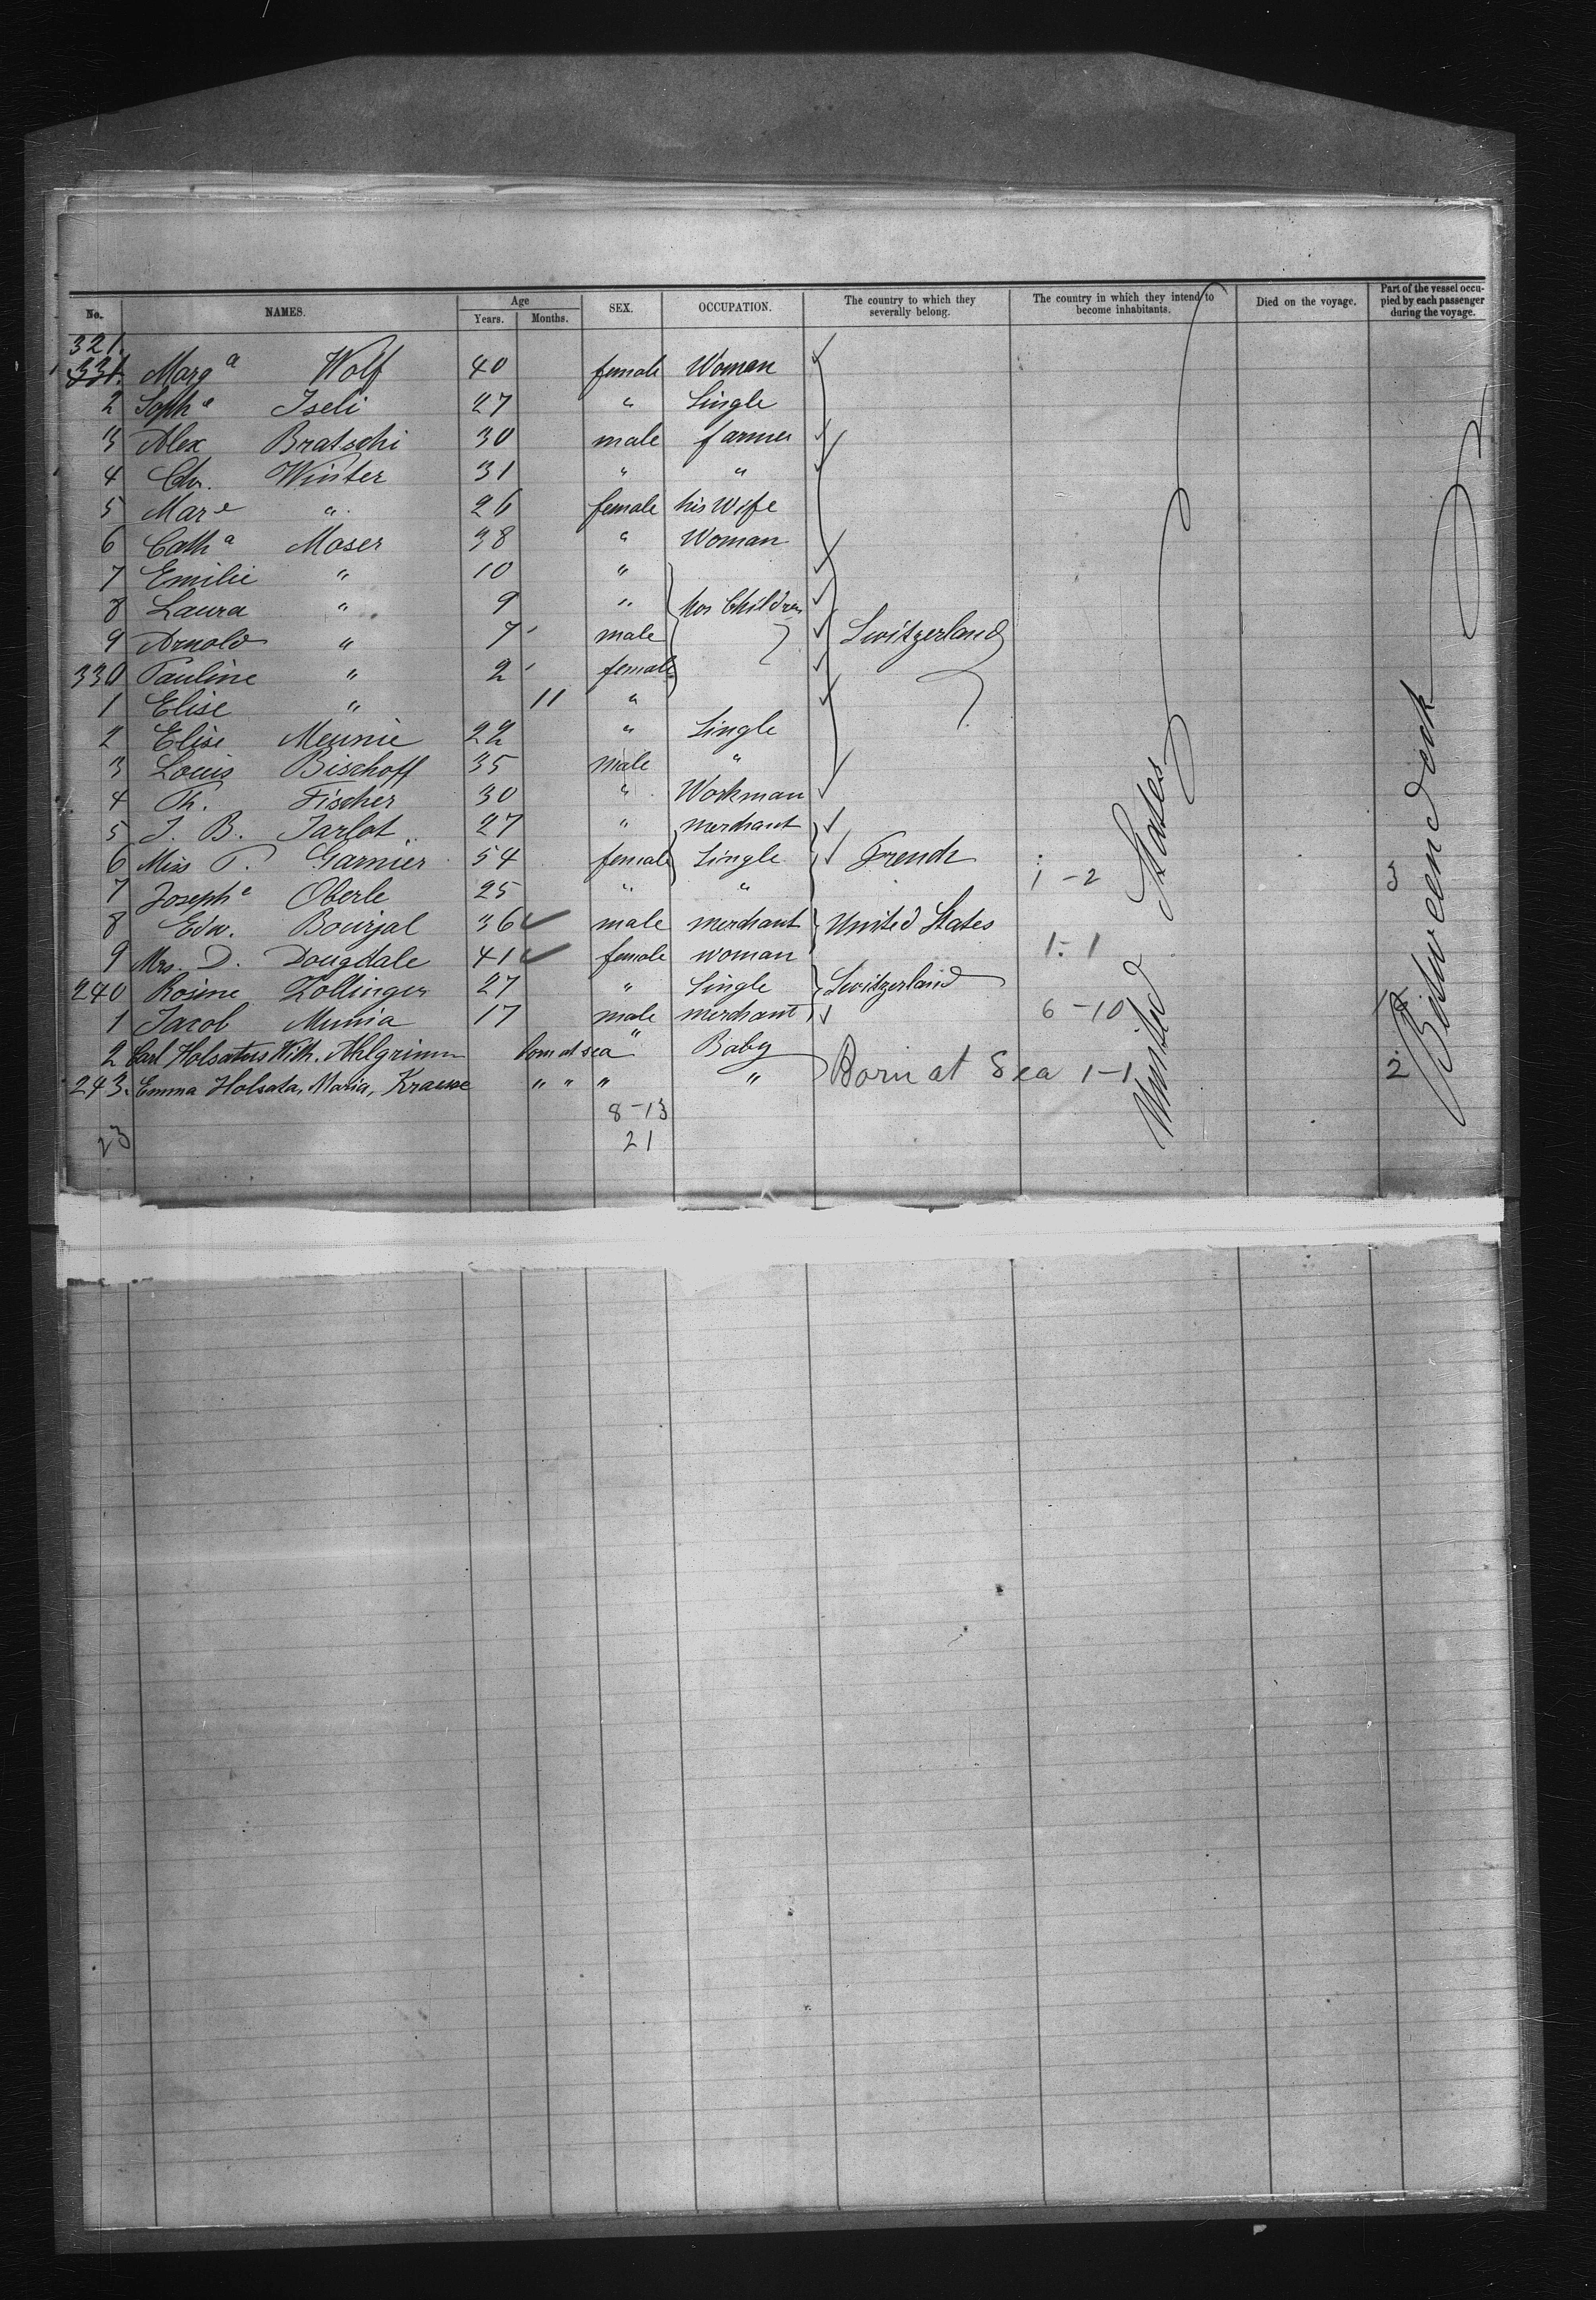 No. NAMES. Age Years. Months. SEX. OCCUPATION. The country to which they severally belong. The country in which they intend to become inhabitants. Died on the voyage. Part of the vessel occupied by each passenger during the voyage.
321.
331. Marg a Wolf 40 female Woman
2 Soph e Iseli 27 " Single
3 Alex Bratschi 30 male farmer
4 Chr. Winter 31 " "
5 Mar e " 26 female his Wife
6 Cath a Moser 38 " Woman
7 Emilie " 10 "
8 Laura " 9 " hos Children
9 Arnold " 7 male Switzerland
330 Pauline " 2 female
1 Elise " 11 "
2 Elise Meunie 22 " Single
3 Louis Bischoff 35 male "
4 Th. Fischer 30 " Workman
5 J. B. Jarlot 27 " merchant
6 Miss T. Garnier 54 female Single French 1-2 3
7 Joseph e Oberle 25 " "
8 Edw. Bourjal 36 male merchant United States
9 Mrs. D. Dougdale 41 female woman 1-1
240 Rosine Zollinger 27 " Single Switzerland
1 Jacob Munia 17 male merchant 6-10
2 Carl Holsatus Wilh. Ahlgrimm born at sea " Baby
243. Emma Holsata, Maria, Krause " " " " Born at Sea 1-1 2
8-13
23 21
United States
Between deck